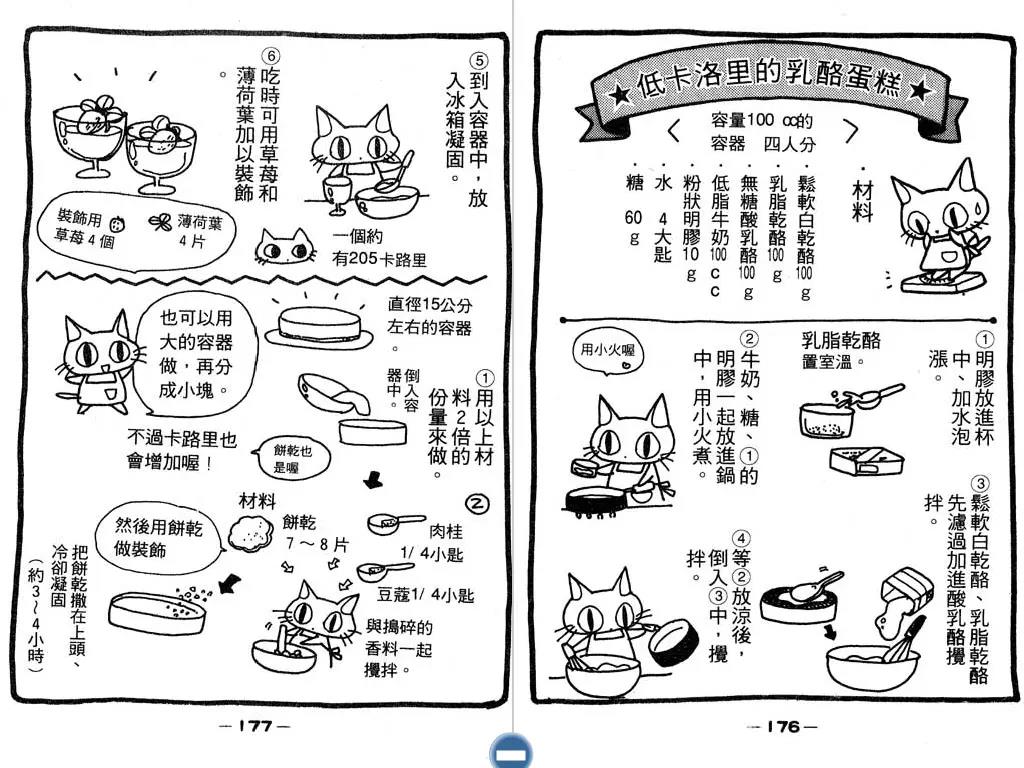 ★低卡洛里的乳酪蛋糕★
容量100 cc的
容器 四人分
・材料
鬆軟白乾酪100g
・乳脂乾酪100g
・無糖酸乳酪100g
・低脂牛奶100cc
・粉狀明膠10g
・水 4大匙
・糖 60g
①明膠放進杯
中、加水泡
漲。
乳脂乾酪
置室溫。
②牛奶、糖、①的
明膠一起放進鍋
中，用小火煮。
用小火喔
③鬆軟白乾酪、乳脂乾酪
先濾過加進酸乳酪攪
拌。
④等②放涼後，
倒入③中，攪
拌。
－176－
⑤到入容器中，放
入冰箱凝固。
⑥吃時可用草苺和
薄荷葉加以裝飾
。
裝飾用
草苺4個
薄荷葉
4片
一個約
有205卡路里
也可以用
大的容器
做，再分
成小塊。
直徑15公分
左右的容器
。
①用以上材
料2倍的
份量來做。
倒入容
器中。
不過卡路里也
會增加喔！
餅乾也
是喔
②
材料
餅乾
7～8片
肉桂
1/4小匙
豆蔻1/4小匙
與搗碎的
香料一起
攪拌。
然後用餅乾
做裝飾
把餅乾撒在上頭、
冷卻凝固
（約3~4小時）
－177－